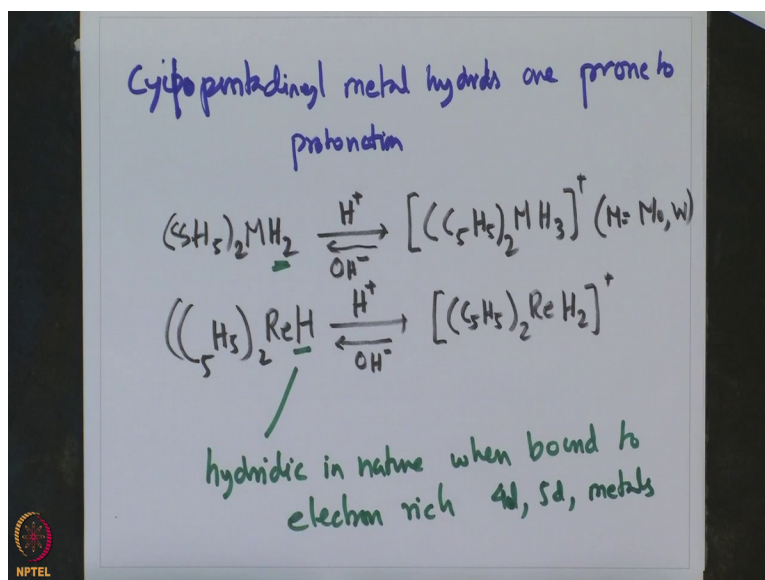 Cyclopentadinyl metal hydrids are prone to
protonation
(C5H5)2MH2 ⇌ H+ OH- [(C5H5)2MH3]+ (M= Mo, W)
(C5H5)2ReH ⇌ H+ OH- [(C5H5)2ReH2]+
hydridic in nature when bound to
electron rich 4d, 5d, metals
NPTEL